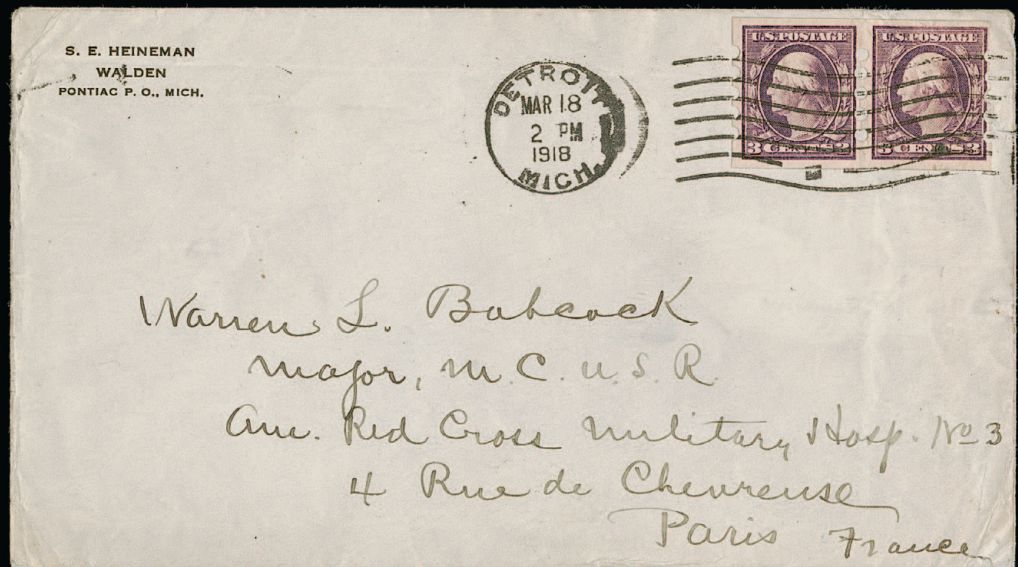 S. E. HEINEMAN
WALDEN
PONTIAC P. O., MICH.
DETROIT,
MAR 18
2 PM
1918
MICH.
U.S. POSTAGE
3 CENTS 3
U.S. POSTAGE
3 CENTS 3
Warren L. Babcock
Major, M. C. U. S. R.
Am. Red Cross Military Hosp. No 3
4 Rue de Chevreuse
Paris France